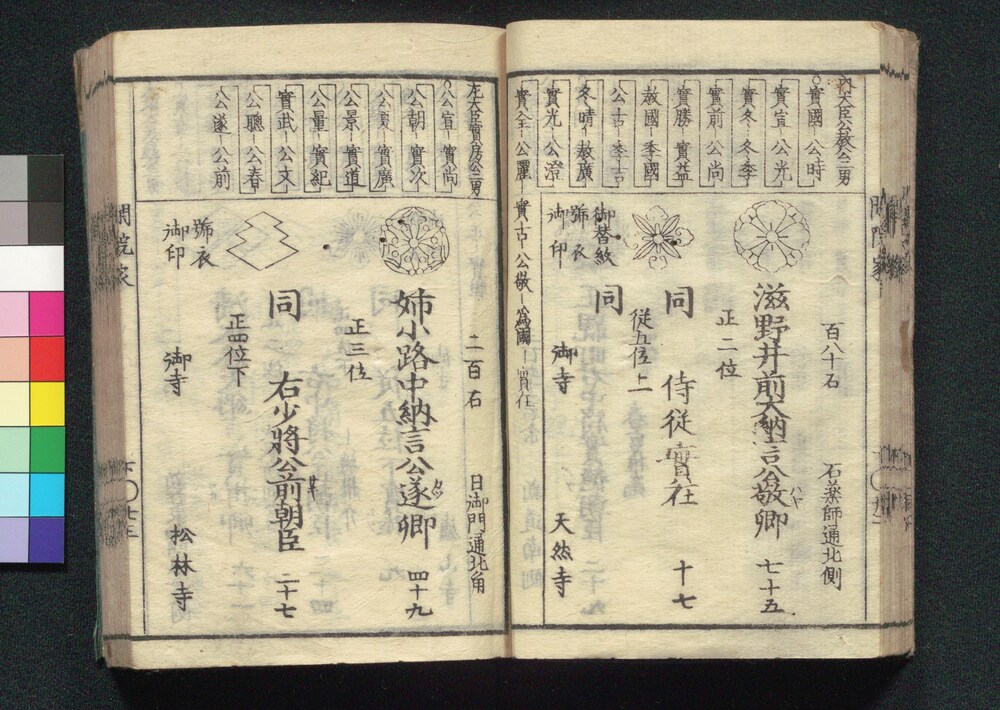 内大臣公教公三男
實國 公時
實宣 公光
實冬 冬季
實前 公尚
實勝 實益
教國 季國
公古 季吉
冬晴 教廣
實光 公澄
實全 公麗
實古 公敬 為國 實在
百八十石
石薬師通北側
滋野井前大納言公敬卿 七十五
ハヤ
正二位
同 侍従實在 十七
従五位上
同
御替紋
號衣
御印
御寺
天然寺
閑院家
左大臣實房公三男
公宣 實尚
公朝 實次
公夏 實廣
公景 實道
公量 實紀
實武 公文
公聰 公春
公遂 公前
二百石
日御門通北角
姉小路中納言公遂卿 四十九
正三位
同 右少將公前朝臣 二十七
正四位下
號衣
御印
御寺
松林寺
閑院家